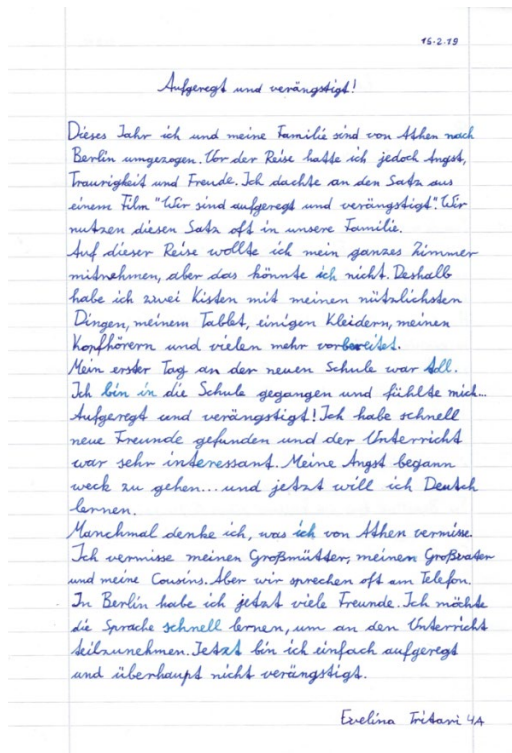 15-2-19
Aufgeregt und verängstigt!
Dieses Jahr ich und meine Familie sind von Athen nach
Berlin umgezogen. Vor der Reise hatte ich jedoch Angst,
Traurigkeit und Freude. Ich dachte an den Satz aus
einem Film "Wir sind aufgeregt und verängstigt". Wir
nutzen diesen Satz oft in unsere Familie.
Auf dieser Reise wollte ich mein ganzes Zimmer
mitnehmen, aber das könnte ich nicht. Deshalb
habe ich zwei Kisten mit meinen nützlichsten
Dingen, meinem Tablet, einigen Kleidern, meinen
Kopfhörern und vielen mehr vorbereitet.
Mein erster Tag an der neuen Schule war toll.
Ich bin in die Schule gegangen und fühlte mich...
Aufgeregt und verängstigt! Ich habe schnell
neue Freunde gefunden und der Unterricht
war sehr interessant. Meine Angst begann
weck zu gehen... und jetzt will ich Deutch
lernen.
Manchmal denke ich, was ich von Athen vermisse.
Ich vermisse meinen Großmütter, meinen Großvater
und meine Cousins. Aber wir sprechen oft am Telefon.
In Berlin habe ich jetzt viele Freunde. Ich möchte
die Sprache schnell lernen, um an den Unterricht
teilzunehmen. Jetzt bin ich einfach aufgeregt
und überhaupt nicht verängstigt.
Evelina Tritari 4A